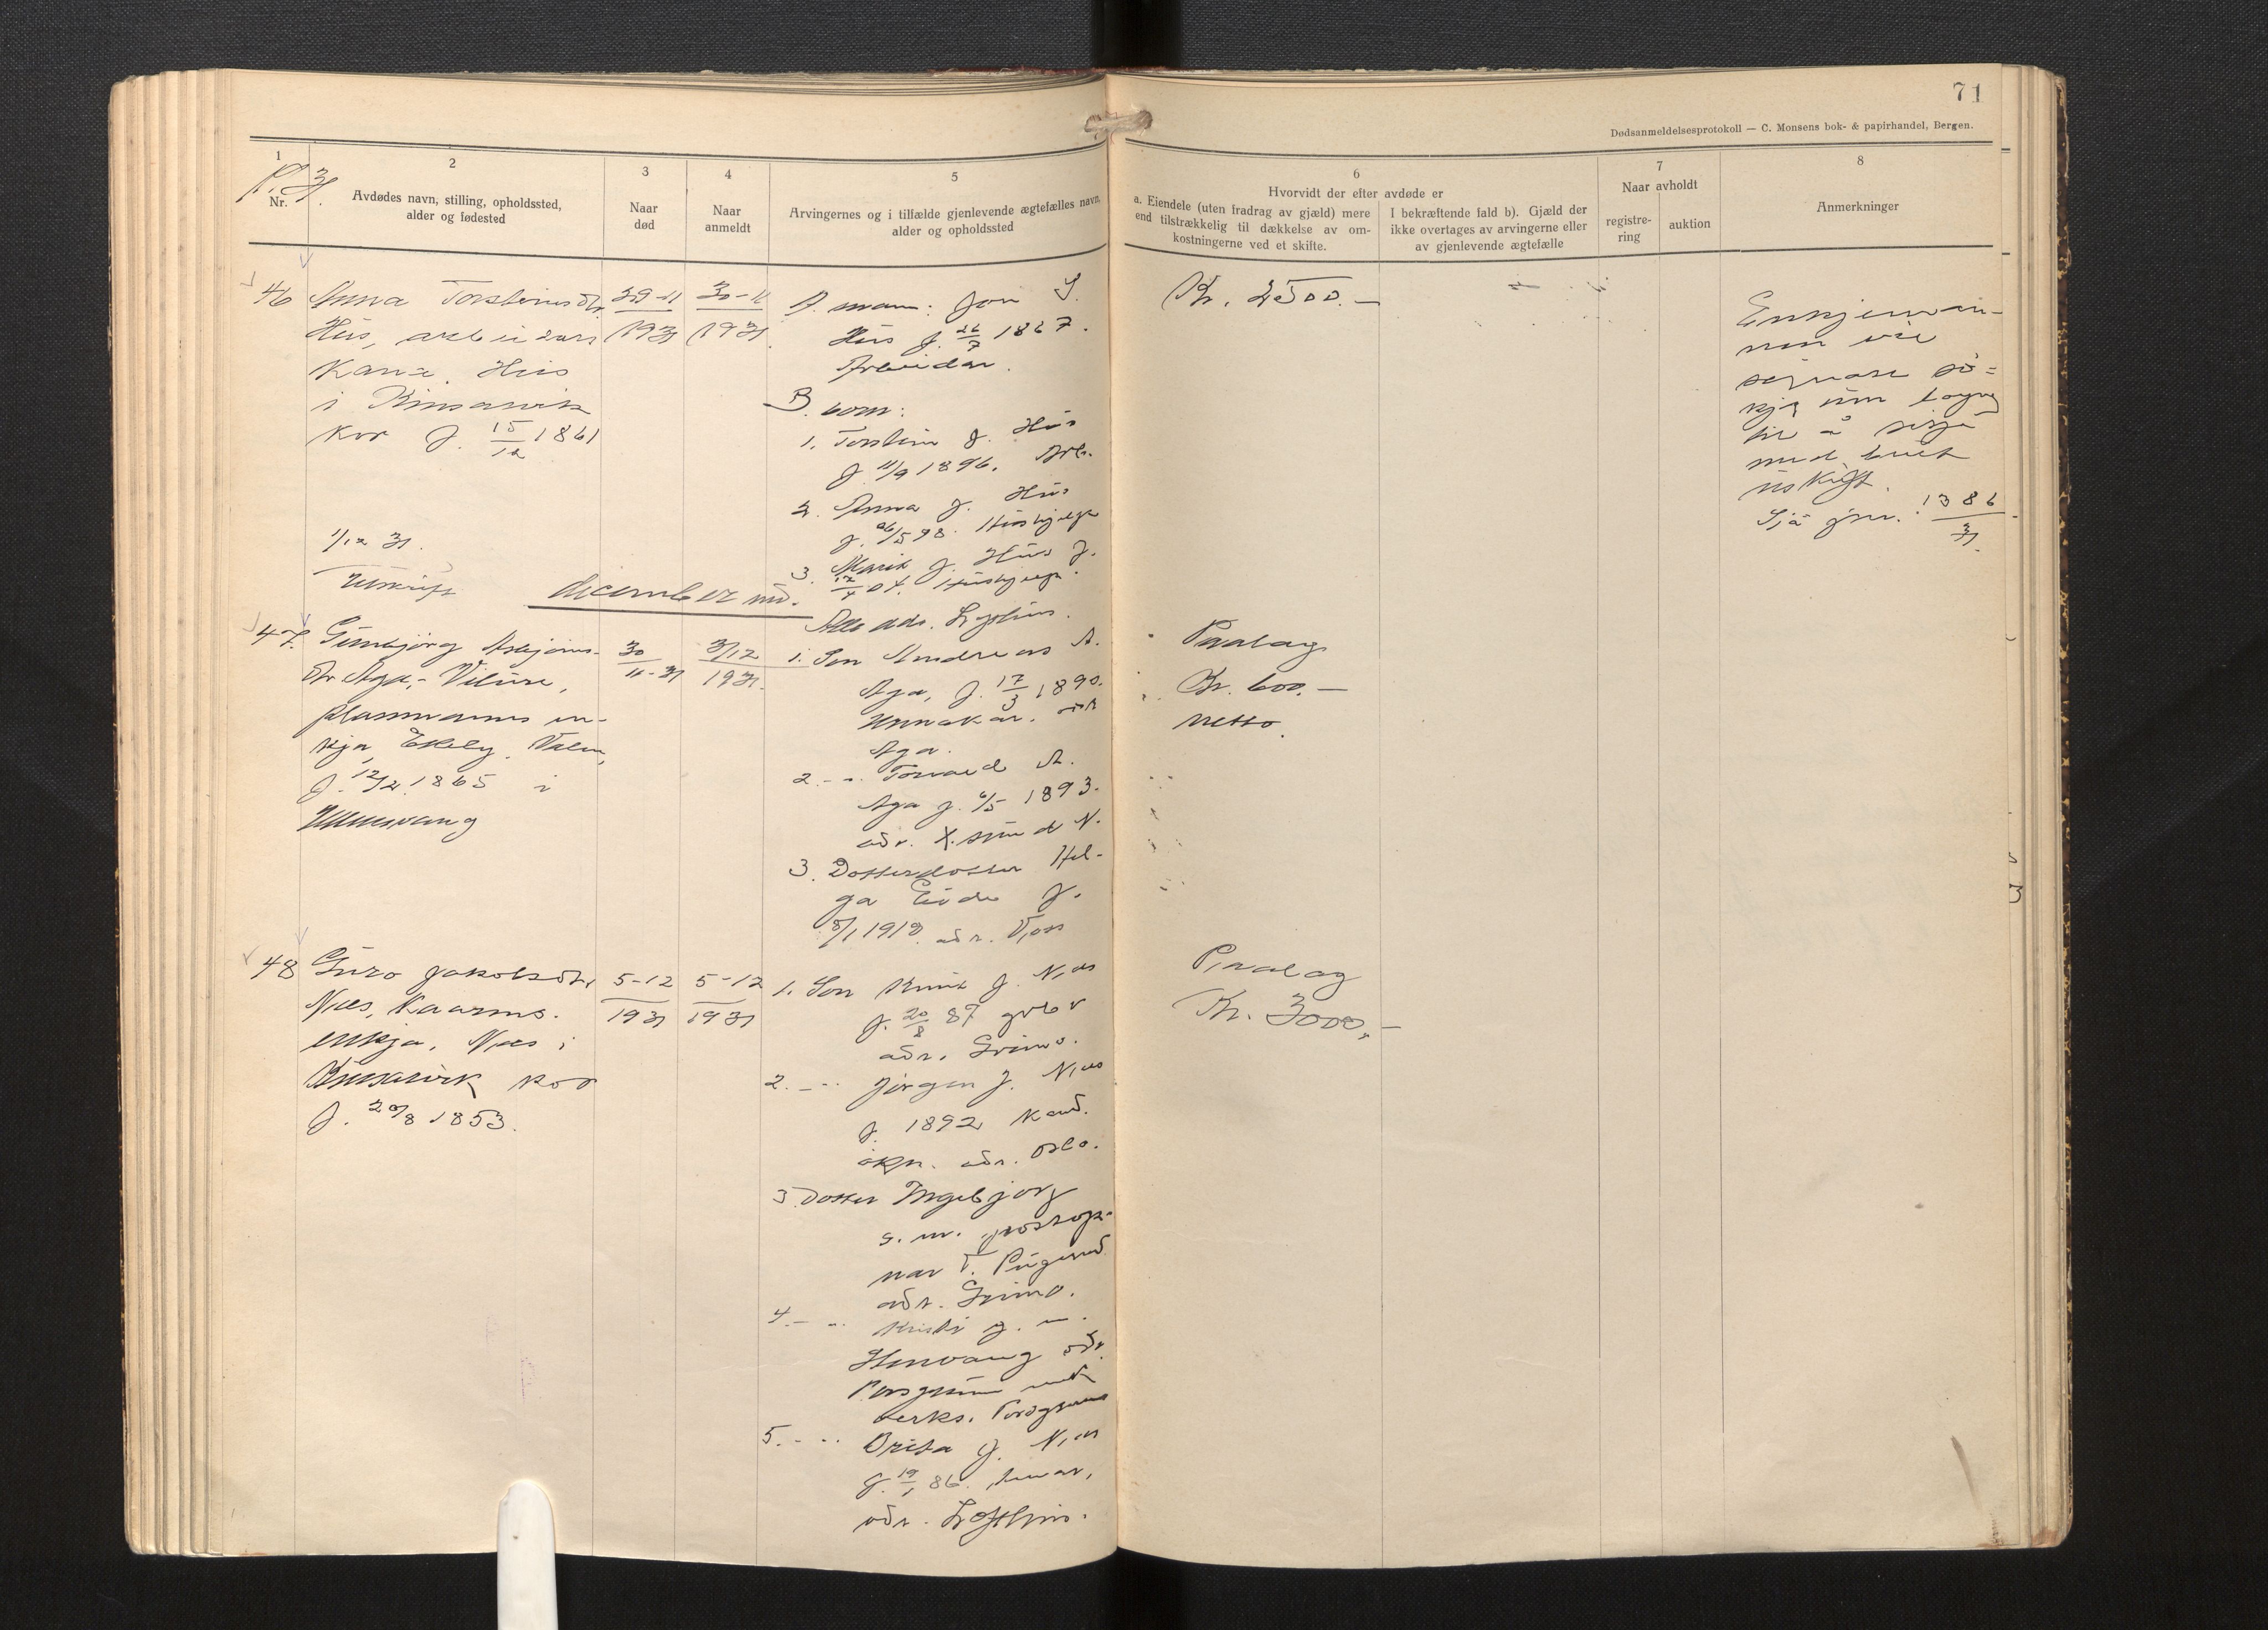 71
Dødsanmeldelsesprotokoll — C. Monsens bok- & papirhandel, Bergen.
1
Nr.
2
Avdødes navn, stilling, opholdssted,
alder og fødested
3
Naar
død
4
Naar
anmeldt
5
Arvingernes og i tilfælde gjenlevende ægtefælles navn,
alder og opholdssted
6
Hvorvidt der efter avdøde er
a. Eiendele (uten fradrag av gjæld) mere
end tilstrækkelig til dækkelse av om-
kostningerne ved et skifte.
I bekræftende fald b). Gjæld der
ikke overtages av arvingerne eller
av gjenlevende ægtefælle
7
Naar avholdt
registre-
ring
auktion
8
Anmerkninger
46
Anna Torsteinsdtr.
Hus, arbeidars
kana Hus
i Kinsarvik
kor f. 15/12 1861
29-11
1931
30-11
1931
A. mann: Jon T.
Hus f. 26/7 1867.
Arbeidar.
B. born:
1. Torstein J. Hus
f. 11/9 1896. Arb.
2. Anna J. Hus
f. 26/5 98. Hushjelp
3. Marit J. Hus f.
12/4 04. Hushjelp.
Alle adr. Lofthus.
Kr. 2500.—
Enkjeman-
nen vil
segnast sø=
kja um løyve
til å sitja
med buet
uskift.
Sjå jnr. 1386/31.
1/12 31.
Utskrift
december md.
47.
Gunbjørg Asbjørns-
dtr Aga,- Vilure,
plassmanns en-
kja, Ekely,
f. 12/2 1865 i
Ullensvang
30
11-31
3/12
1931.
1. Son Andreas A.
Aga, f. 17/3 1890.
Aga.
2. -"- Torvald A.
Aga f. 6/5 1893.
adr. X.sund N.
3. Dotterdotter Hel-
ga Eide f.
8/1 1918. adr. Voss
Paalag
Kr. 600.—
netto.
48
Guro Jakobsdtr
Næs, kaarms.
enkja, Næs i
Kinsarvik kor
f. 20/8 1853.
5-12
1931
5-12
1931
1. Son Knut J. Næs
f. 20/8 87 grbr
adr. Grimo.
2. -"- Jørgen J. Næs
f. 1892 kand.
økn. adr. Oslo.
3. Dotter Ingebjørg
g. m. postop-
nar T.
adr. Grimo.
4. -"- Kristi g. m.
adr.
Porsgrunn
verks. Porsgrunn
5. -"- Brita J. Næs
f. 19/1 86.
adr. Lofthus.
Paalag
Kr. 3000,—